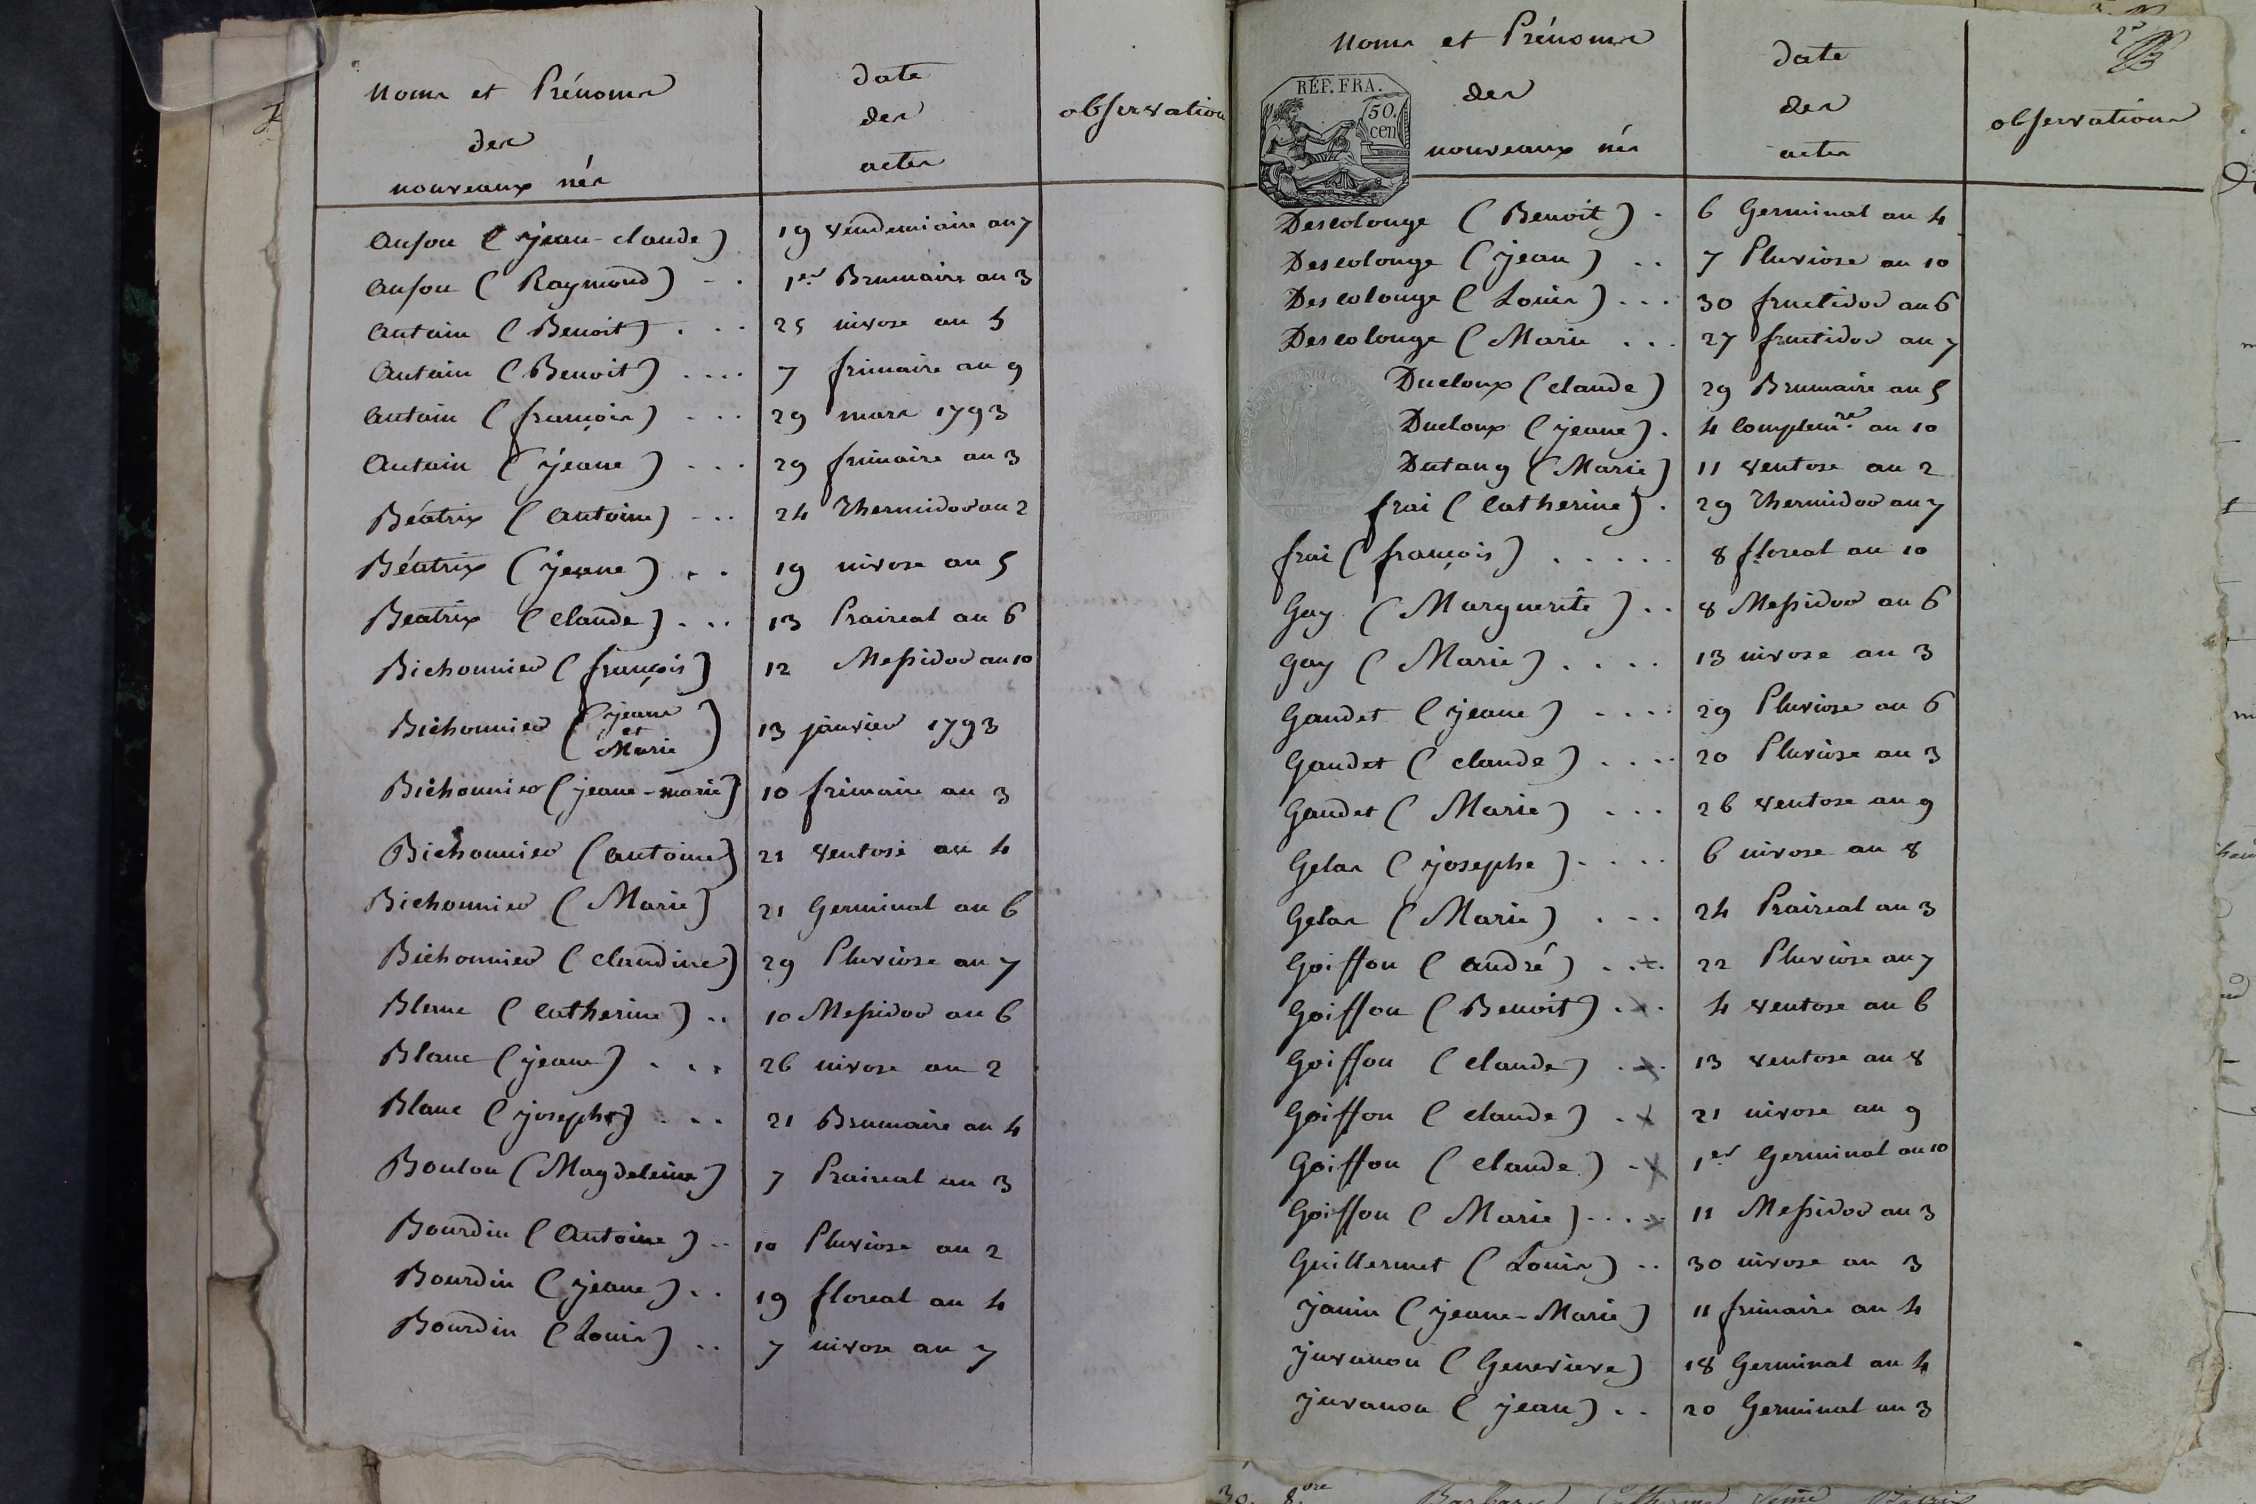 Noms et Prénoms
des
nouveaux nés
date
des
actes
observation
Anson (jean-claude) 19 vendemiaire an 7
Anson (Raymond) . . 1er Brumaire an 3
Antain (Benoit) . . . 25 nivose an 5
Antain (Benoit) . . . . 7 frimaire an 9
Antain (françois) . . . 29 mars 1793
Antain (jeane) . . . 29 frimaire an 3
Béatrix (antoine) . . . 24 Thermidor an 2
Béatrix (jeane) . . 19 nivose an 5
Beatrix (claude) . . . 13 Praireal an 6
Bichonnier (françois) 12 Messidor an 10
Bichonnier (jeane et Marie) 13 janvier 1793
Bichonnier (jeane-marie) 10 frimaire an 3
Bichonnier (antoine) 21 ventose an 4
Bichonnier (Marie) 21 Germinal an 6
Bichonnier (claudine) 29 Pluviose an 7
Blanc (catherine) . . 10 Messidor an 6
Blanc (jeane) . . . 26 nivose an 2
Blanc (joseph) . . . 21 Brumaire an 4
Boulon (Magdeleine) 7 Praireal an 3
Bourdin (Antoine) . . 10 Pluviose an 2
Bourdin (jeane) . . 19 floreal an 4
Bourdin (Louis) . . 7 nivose an 7
Noms et Prénoms
des
nouveaux nés
REP. FRA.
50.
cen
date
des
actes
observations
Descolonge (Benoit) . 6 Germinal an 4
Descolonge (jean) . . 7 Pluviose an 10
Descolonge (Louis) . . . 30 fructidor an 6
Descolonge (Marie . . . 27 fructidor an 7
Ducloux (claude) 29 Brumaire an 5
Ducloux (jeane) . 4 Complemre an 10
Dutang (Marie) 11 ventose an 2
frai (catherine) . 29 Thermidor an 7
frai (françois) . . . . . 8 floreal an 10
Gay (Marguerite) . . 8 Messidor an 6
Gay (Marie) . . . . 13 nivose an 3
Gaudet (jeane) . . . . 29 Pluviose an 6
Gaudet (claude) . . . . 20 Pluviose an 3
Gaudet (Marie) . . . 26 ventose an 9
Gelas (josephe) . . . . 6 nivose an 8
Gelas (Marie) . . . 24 Praireal an 3
Goiffon (andré) . . x . 22 Pluviose an 7
Goiffon (Benoit) . x . 4 ventose an 6
Goiffon (claude) . x . 13 ventose an 8
Goiffon (claude) . x 21 nivose an 9
Goiffon (claude) . x 1er Germinal an 10
Goiffon (Marie) . . . x 11 Messidor an 3
Guillermet (Louis) . . 30 nivose an 3
janin (jeane-Marie) 11 frimaire an 4
juvanon (Genevieve) 18 Germinal an 4
juvanon (jean) . . 20 Germinal an 3